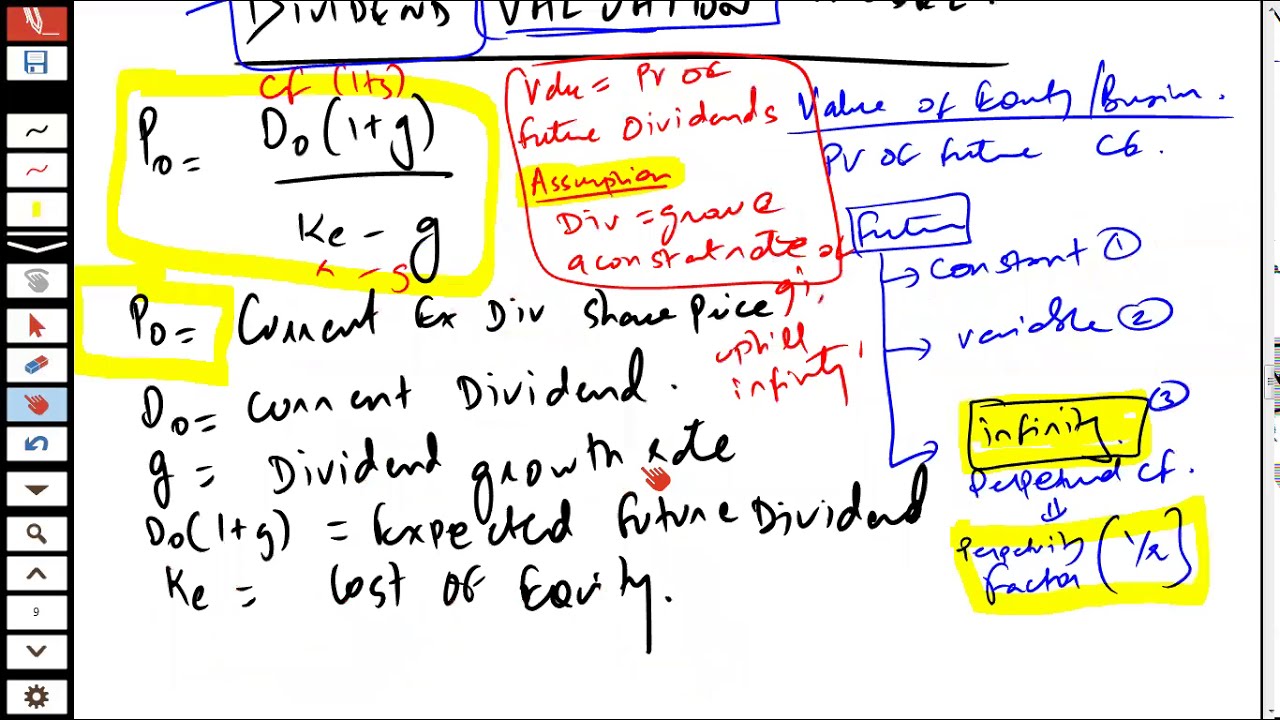 DIVIDEND VALUATION MODEL.
CF (1+g)
P₀ = D₀(1+g)
Ke - g
r - g
Value = PV of
future Dividends
Assumption
Div = grow @
a constant rate of
gi,
uptill
infinity
Value of Equity /
PV of future CF.
Future
constant ①
variable ②
infinity ③
Perpetual CF.
⇓
Perpetuity
factor (1/r)
P₀ = Current Ex Div Share Price
D₀ = current Dividend.
g = Dividend growth rate
D₀(1+g) = Expected future Dividend
Ke = Cost of Equity.
9